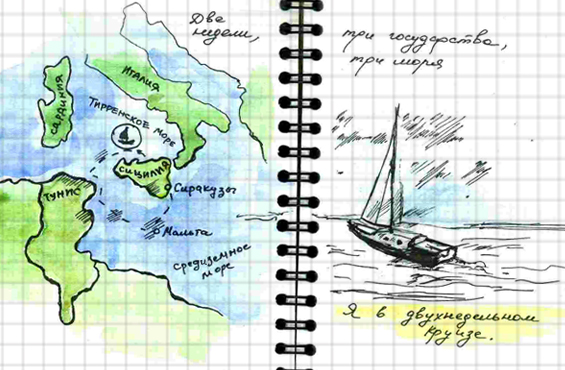 Две
недели,
ИТАЛИЯ
САРДИНИЯ
ТИРРЕНСКОЕ МОРЕ
СИЦИЛИЯ
Сиракузы
ТУНИС
Мальта
Средиземное
море
три государства,
три моря
Я в двухнедельном
круизе.